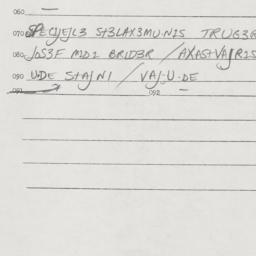 060 —
070 SPECJEJL3 St3LAX3MU·N2S TRUG3R
080 JOS3F MD2 BRID3R / AXAStVAJR2S
090 U·DE StAJN1 / VAJ·U·DE
091 092 —